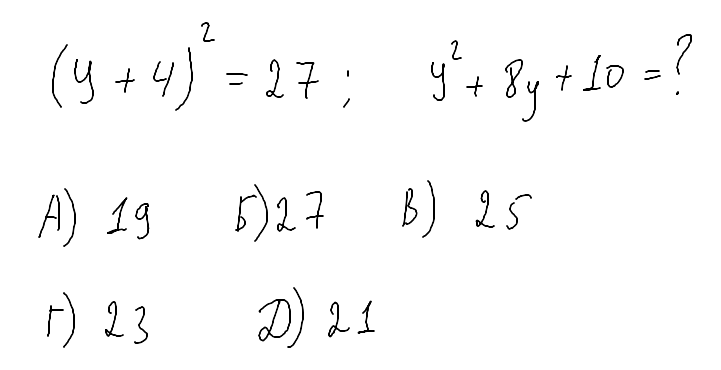 (y + 4)² = 27 ; y² + 8y + 10 = ?
А) 19 Б) 27 В) 25
Г) 23 Д) 21